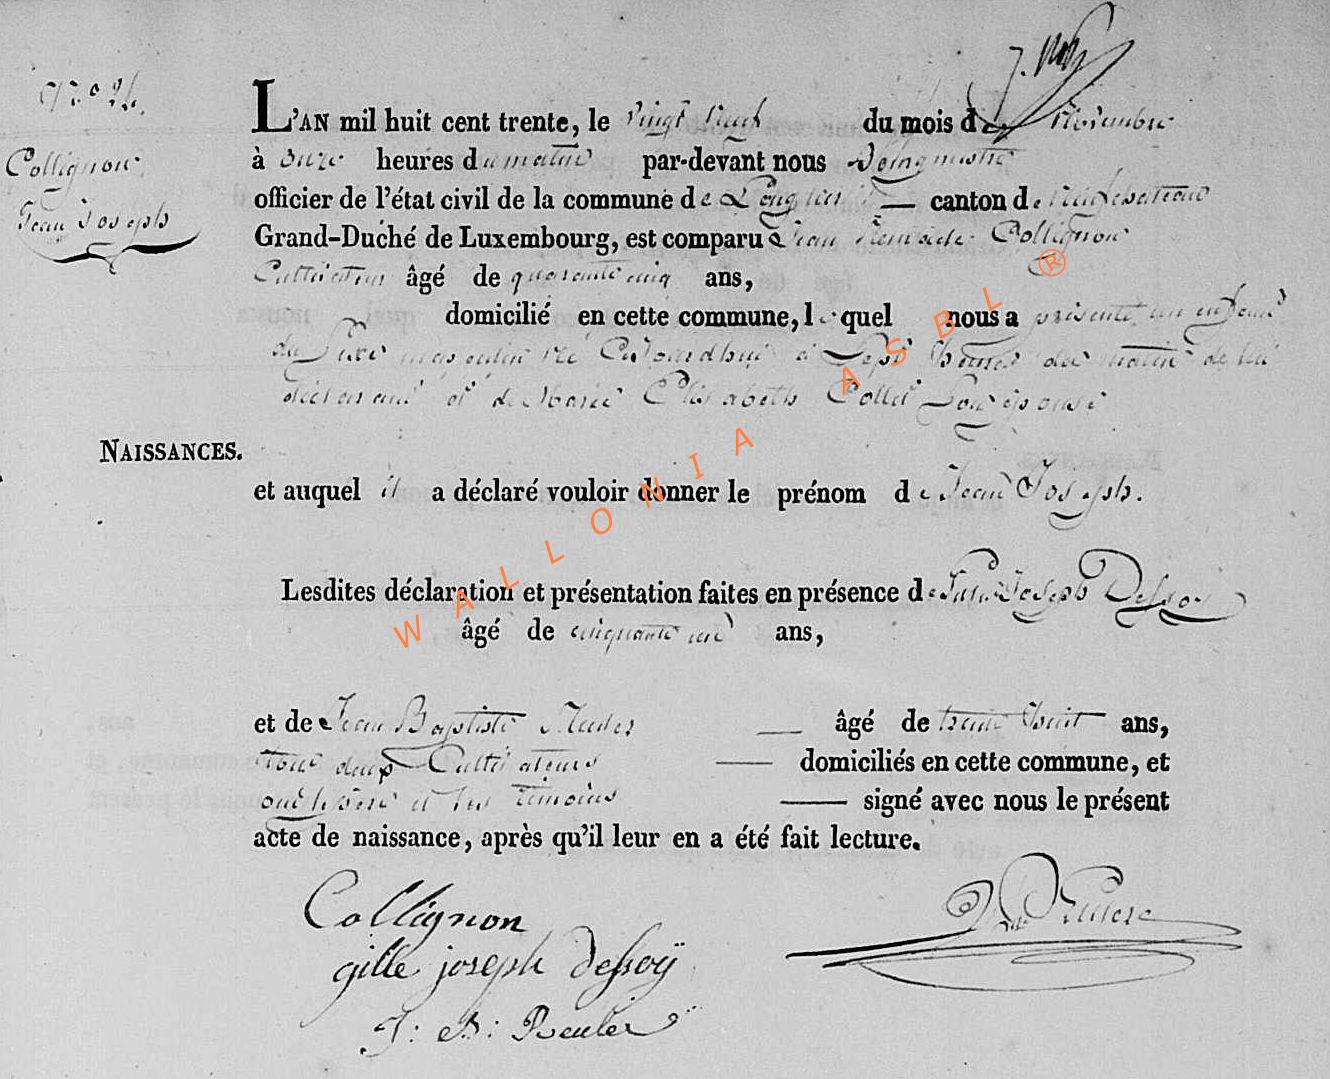 N.° 24.
Collignon
Jean Joseph
L'AN mil huit cent trente, le vingt du mois de Novembre
à onze heures du matin par-devant nous Bourgmestre
officier de l'état civil de la commune de Longlier — canton de Neufchateau
Grand-Duché de Luxembourg, est comparu Jean Collignon
Cultivateur âgé de quarante cinq ans,
domicilié en cette commune, lequel nous a présenté un enfant
du sexe masculin né aujourdhui à Sept heures du matin de lui
déclarant et de Marie Elisabeth Collet Son épouse
NAISSANCES.
et auquel il a déclaré vouloir donner le prénom de Jean Joseph.
Lesdites déclaration et présentation faites en présence de Joseph Dessoy
âgé de cinquante un ans,
et de Jean Baptiste — âgé de trente huit ans,
tous deux Cultivateurs — domiciliés en cette commune, et
ont le père et les témoins — signé avec nous le présent
acte de naissance, après qu'il leur en a été fait lecture.
Collignon
gille joseph dessoÿ
J: B: Reuler
WALLONIA ASBL ®